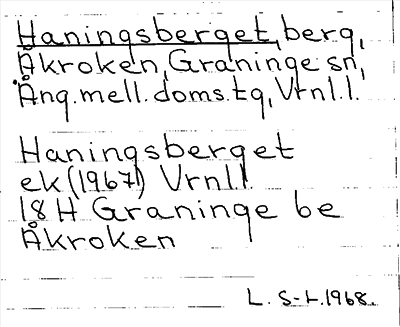 Haningsberget, berg,
Åkroken, Graninge sn,
Ång. mell. doms. tg, Vrnl. l.
Haningsberget
ek (1967) Vrnl l
18 H Graninge be
Åkroken
L. S-L. 1968.